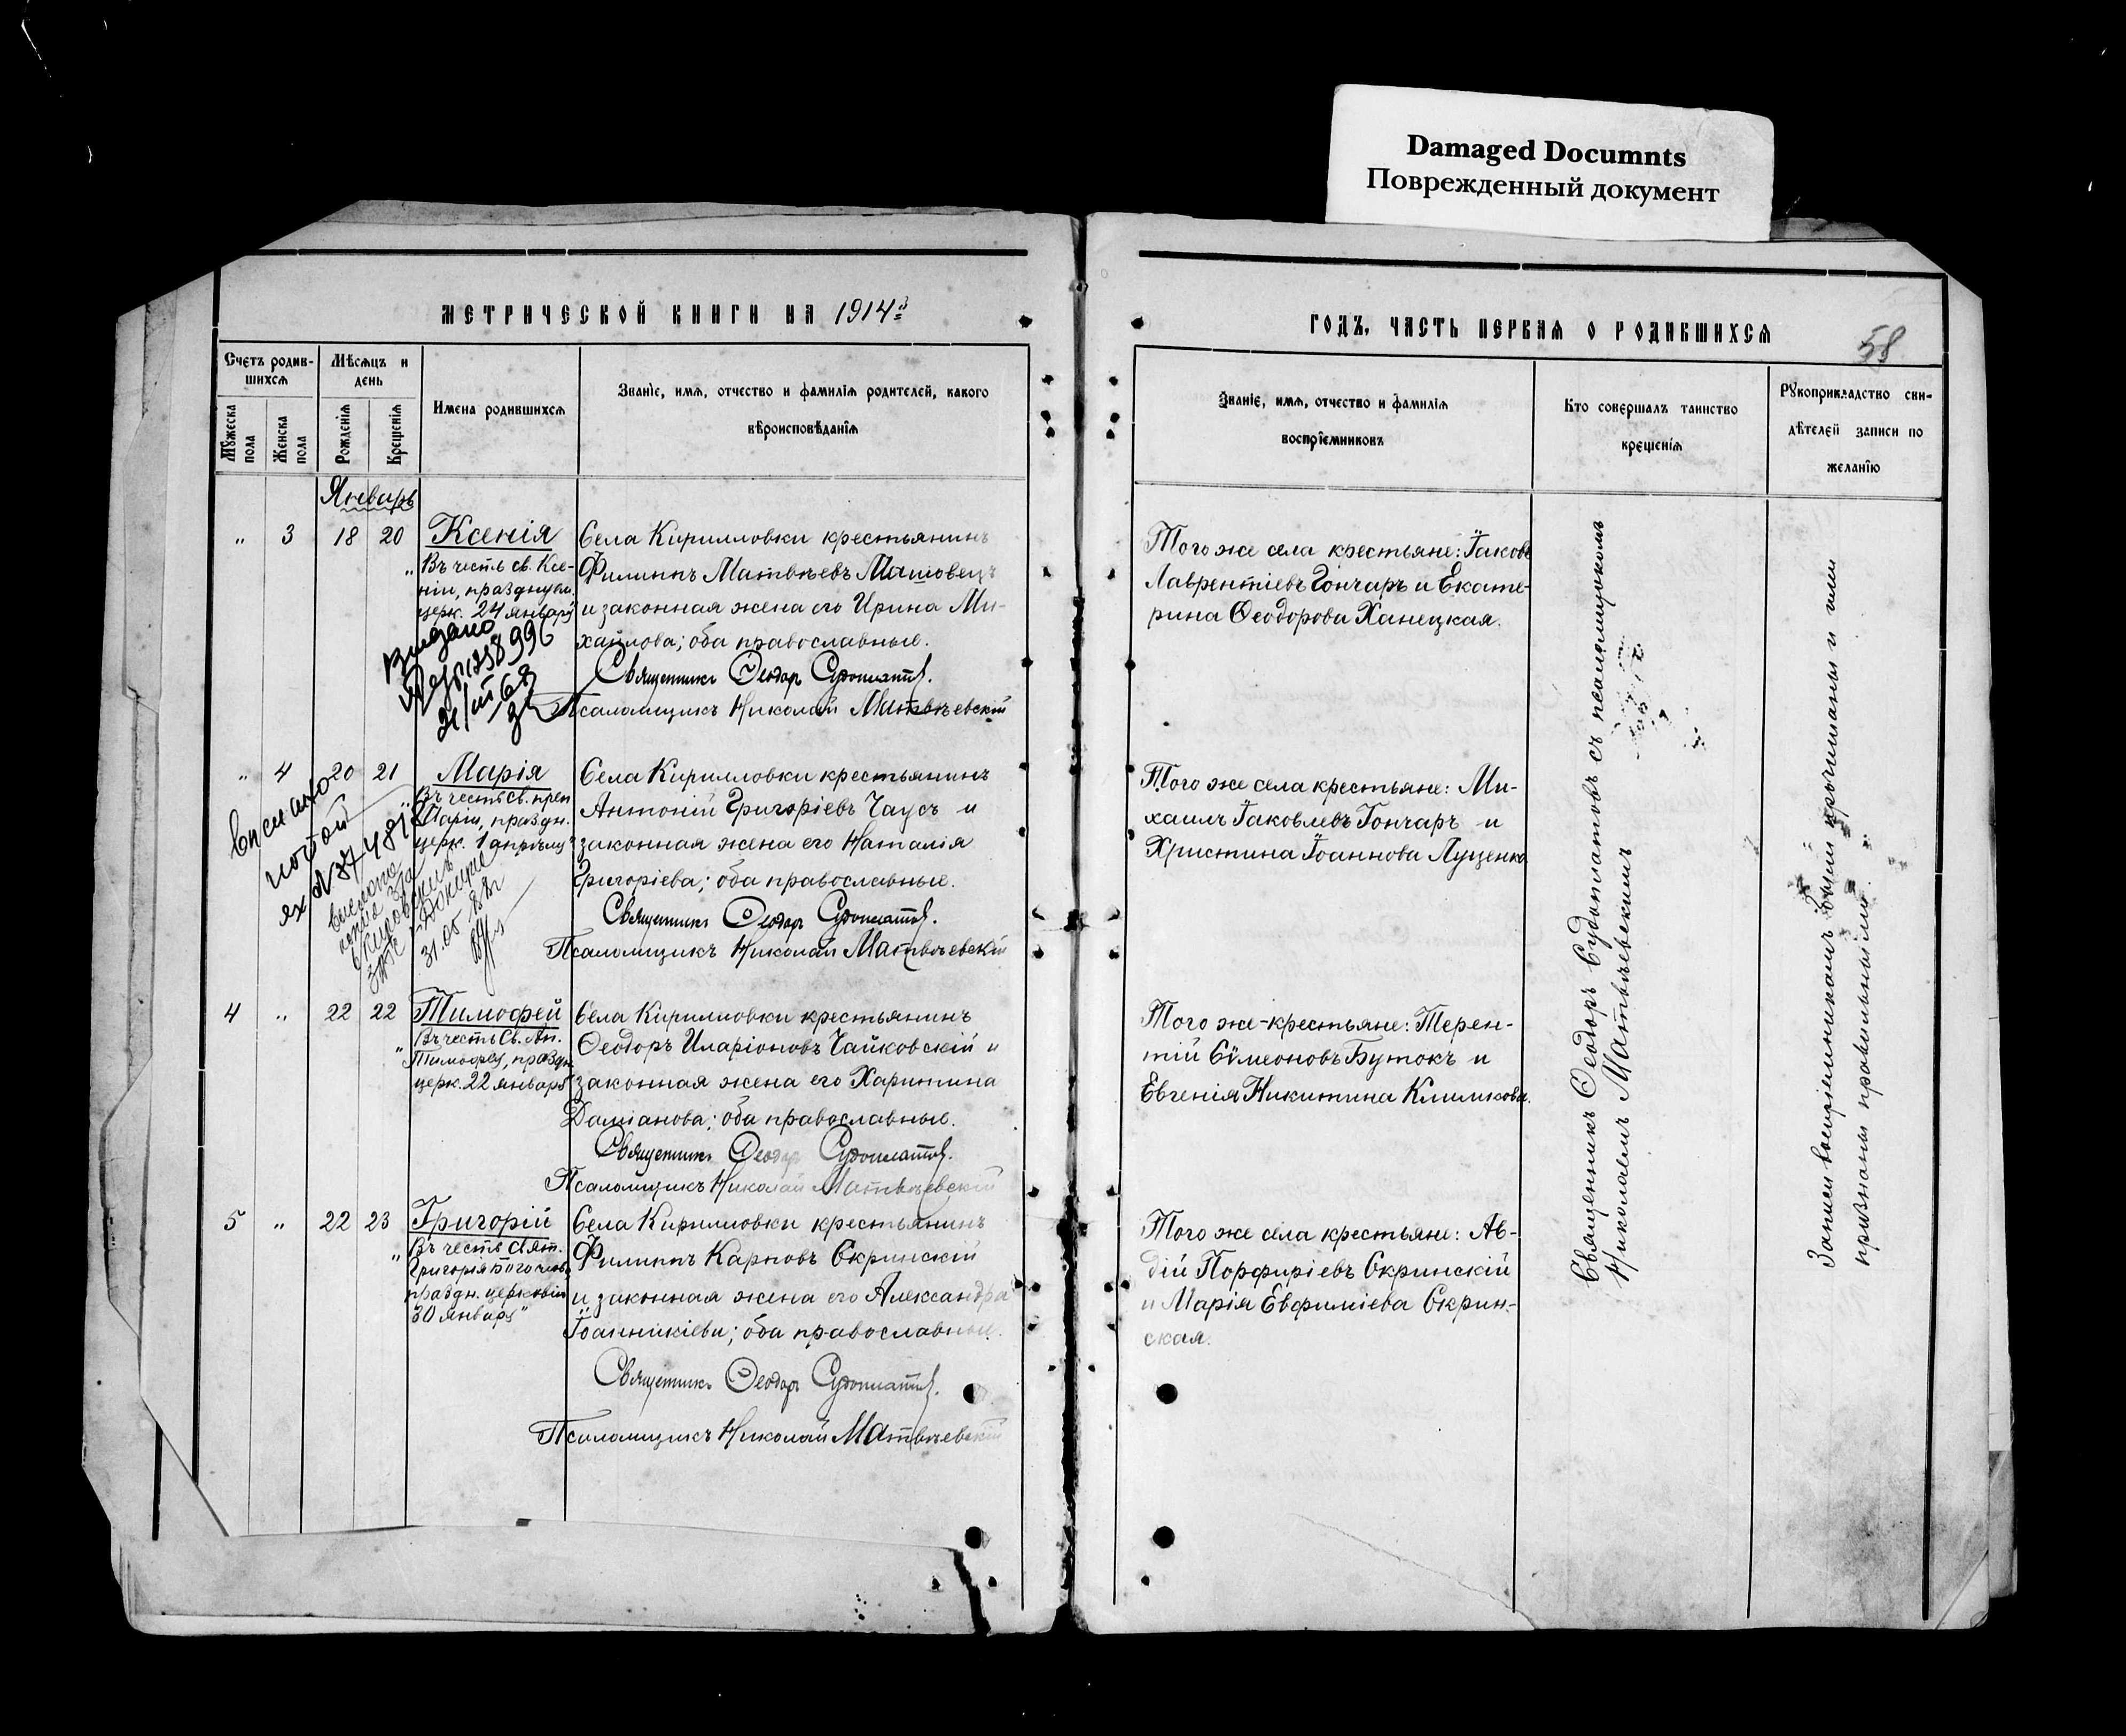 Damaged Documnts
Поврежденный документ
МЕТРИЧЕСКОЙ КНИГИ НА 1914й
ГОДЪ, ЧАСТЬ ПЕРВАЯ О РОДИВШИХСЯ
58
Счетъ родив-
шихся
Мѣсяцъ и
день
Мужеска
пола
Женска
пола
Рожденія
Крещенія
Имена родившихся
Званіе, имя, отчество и фамилія родителей, какого
вѣроисповѣданія
Званіе, имя, отчество и фамилія
воспріемниковъ
Кто совершалъ таинство
крещенія
Рукоприкладство сви-
дѣтелей записи по
желанію
Январь
" 3 18 20 Ксенія
"Въ честь св. Ксе-
ніи, празднуем.
церк. 24 января"
Села Кирилловки крестьянинъ
Филиппъ Матвѣевъ Матовецъ
и законная жена его Ирина Ми-
хайлова; оба православные.
Священникъ Ѳеодоръ Судоплатовъ.
Псаломщикъ Николай Матвѣевскій
Того же села крестьяне: Іаковъ
Лаврентіевъ Гончаръ и Екате-
рина Ѳеодорова Ханецкая.
Выдано
996
" 4 20 21 Марія
"Въ честь св. преп.
Маріи, праздн.
церк. 1 апрѣля"
Села Кирилловки крестьянинъ
Антоній Григоріевъ Чаусъ и
законная жена его Наталія
Григоріева; оба православные.
Священникъ Ѳеодоръ Судоплатовъ.
Псаломщикъ Николай Матвѣевскій
Того же села крестьяне: Ми-
хаилъ Іаковлевъ Гончаръ и
Христина Іоаннова Луценко
31.05
4 " 22 22 Тимофей
"Въ честь Св. Ап.
Тимофея, праздн.
церк. 22 января"
Села Кирилловки крестьянинъ
Ѳеодоръ Иларіоновъ Чайковскій и
законная жена его Харитина
Даміанова; оба православные.
Священникъ Ѳеодоръ Судоплатовъ.
Псаломщикъ Николай Матвѣевскій
Того же крестьяне: Терен-
тій Сѵмеоновъ Бутокъ и
Евгенія Никитина Климкова.
5 " 22 23 Григорій
"Въ честь Свят.
Григорія Богослова,
праздн. церковію
30 января"
Села Кирилловки крестьянинъ
Филиппъ Карповъ Скринскій
и законная жена его Александра
Іоанникіева; оба православные.
Священникъ Ѳеодоръ Судоплатовъ.
Псаломщикъ Николай Матвѣевскій
Того же села крестьяне: Ав-
дій Порфиріевъ Скринскій
и Марія Евфиміева Скрин-
ская.
Священникъ Ѳеодоръ Судоплатовъ съ псаломщикомъ
Николаемъ Матвѣевскимъ
Записи воспріемникамъ были прочитаны и ими
признаны правильными.